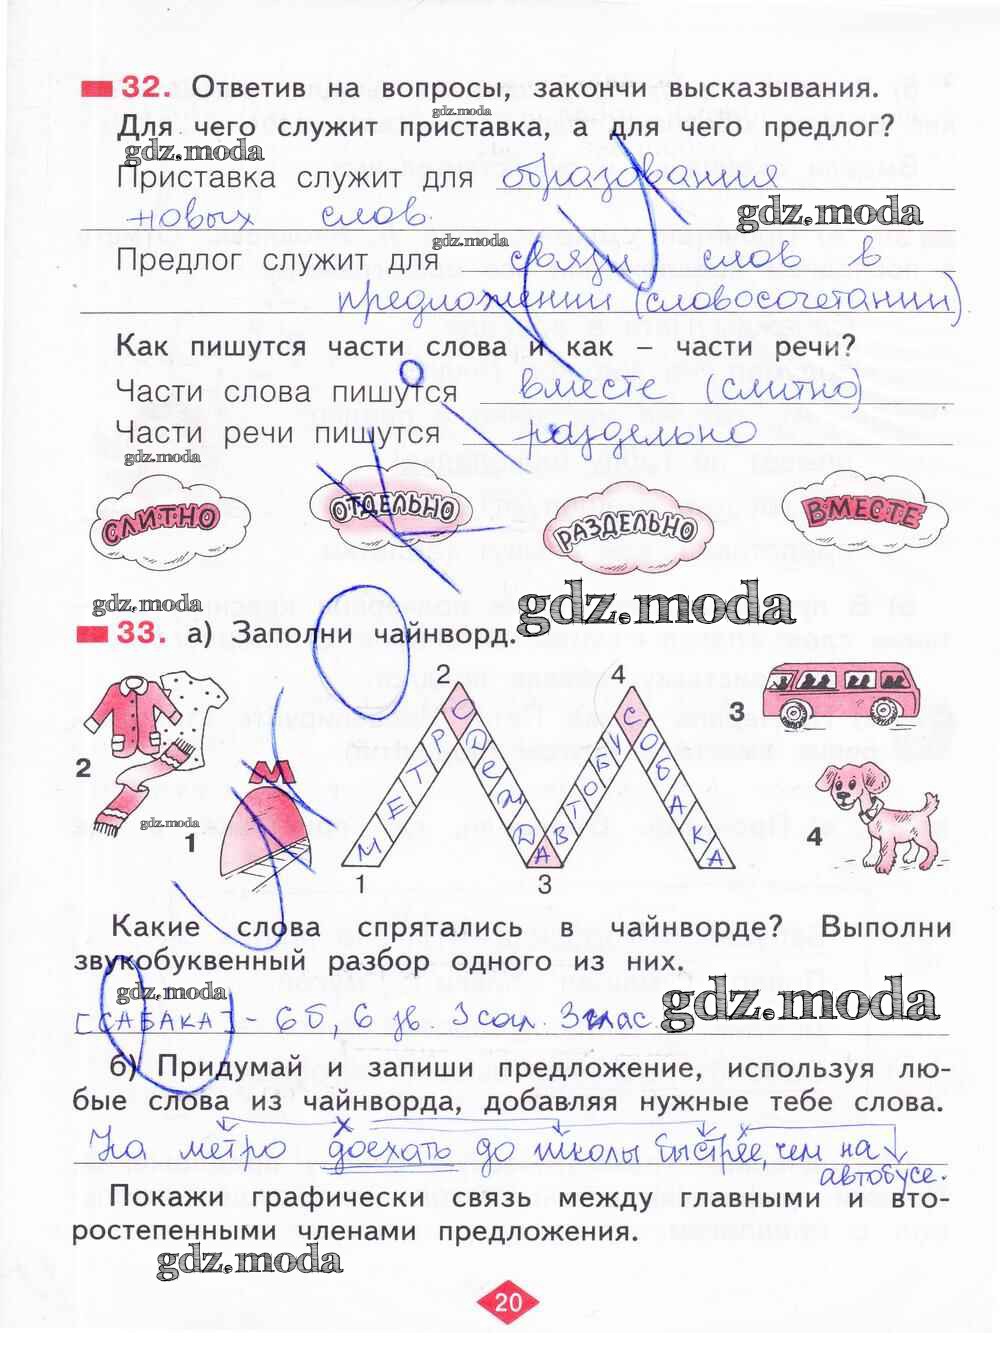 32. Ответив на вопросы, закончи высказывания.
gdz.moda
Для чего служит приставка, а для чего предлог?
gdz.moda
Приставка служит для образования
новых слов.
gdz.moda
gdz.moda
Предлог служит для связи слов в
предложении (словосочетании).
Как пишутся части слова и как – части речи?
Части слова пишутся вместе (слитно)
Части речи пишутся раздельно
gdz.moda
СЛИТНО
ОТДЕЛЬНО
РАЗДЕЛЬНО
ВМЕСТЕ
gdz.moda
gdz.moda
33. а) Заполни чайнворд.
2
4
3
2
М
МЕТРОДЕЖДАВТОБУСОБАКА
gdz.moda
1
4
1
3
Какие слова спрятались в чайнворде? Выполни
звукобуквенный разбор одного из них.
gdz.moda
gdz.moda
[САБАКА] - 6 б, 6 зв. 3 согл. 3 глас.
б) Придумай и запиши предложение, используя лю-
бые слова из чайнворда, добавляя нужные тебе слова.
На метро доехать до школы быстрее, чем на
автобусе.
Покажи графически связь между главными и вто-
ростепенными членами предложения.
gdz.moda
20